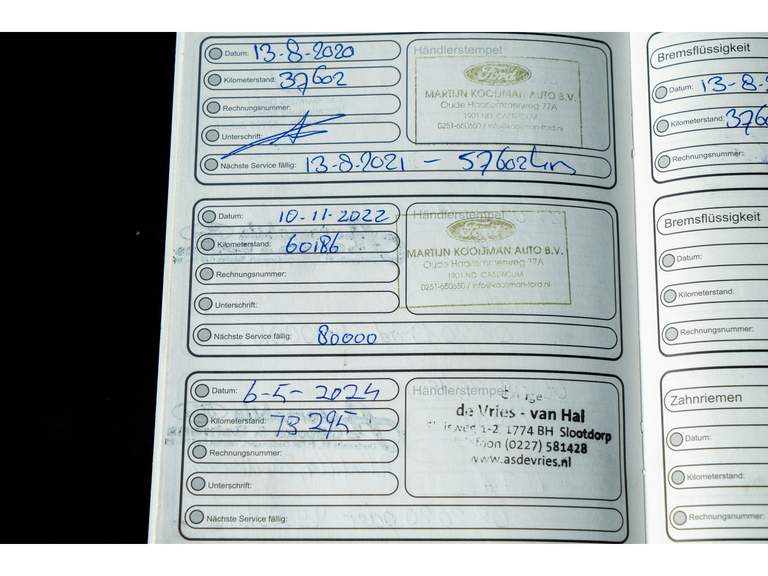 Datum: 13-8-2020
Kilometerstand: 37602
Rechnungsnummer:
Unterschrift:
Nächste Service fällig: 13-8-2021 - 57602km
Händlerstempel
Ford
MARTIJN KOOIJMAN AUTO B.V.
Oude Haarlemmerweg 77A
1901 ND CASTRICUM
0251-650650 / info@kooijman-ford.nl
Bremsflüssigkeit
Datum: 13-8-
Kilometerstand: 376
Rechnungsnummer:
Datum: 10-11-2022
Kilometerstand: 60186
Rechnungsnummer:
Unterschrift:
Nächste Service fällig: 80000
Händlerstempel
Ford
MARTIJN KOOIJMAN AUTO B.V.
Oude Haarlemmerweg 77A
1901 ND CASTRICUM
0251-650650 / info@kooijman-ford.nl
Bremsflüssigkeit
Datum:
Kilometerstand:
Rechnungsnummer:
Datum: 6-5-2024
Kilometerstand: 73295
Rechnungsnummer:
Unterschrift:
Nächste Service fällig:
Händlerstempel
de Vries - van Hal
1-2 1774 BH Slootdorp
foon (0227) 581428
www.asdevries.nl
Zahnriemen
Datum:
Kilometerstand:
Rechnungsnummer: